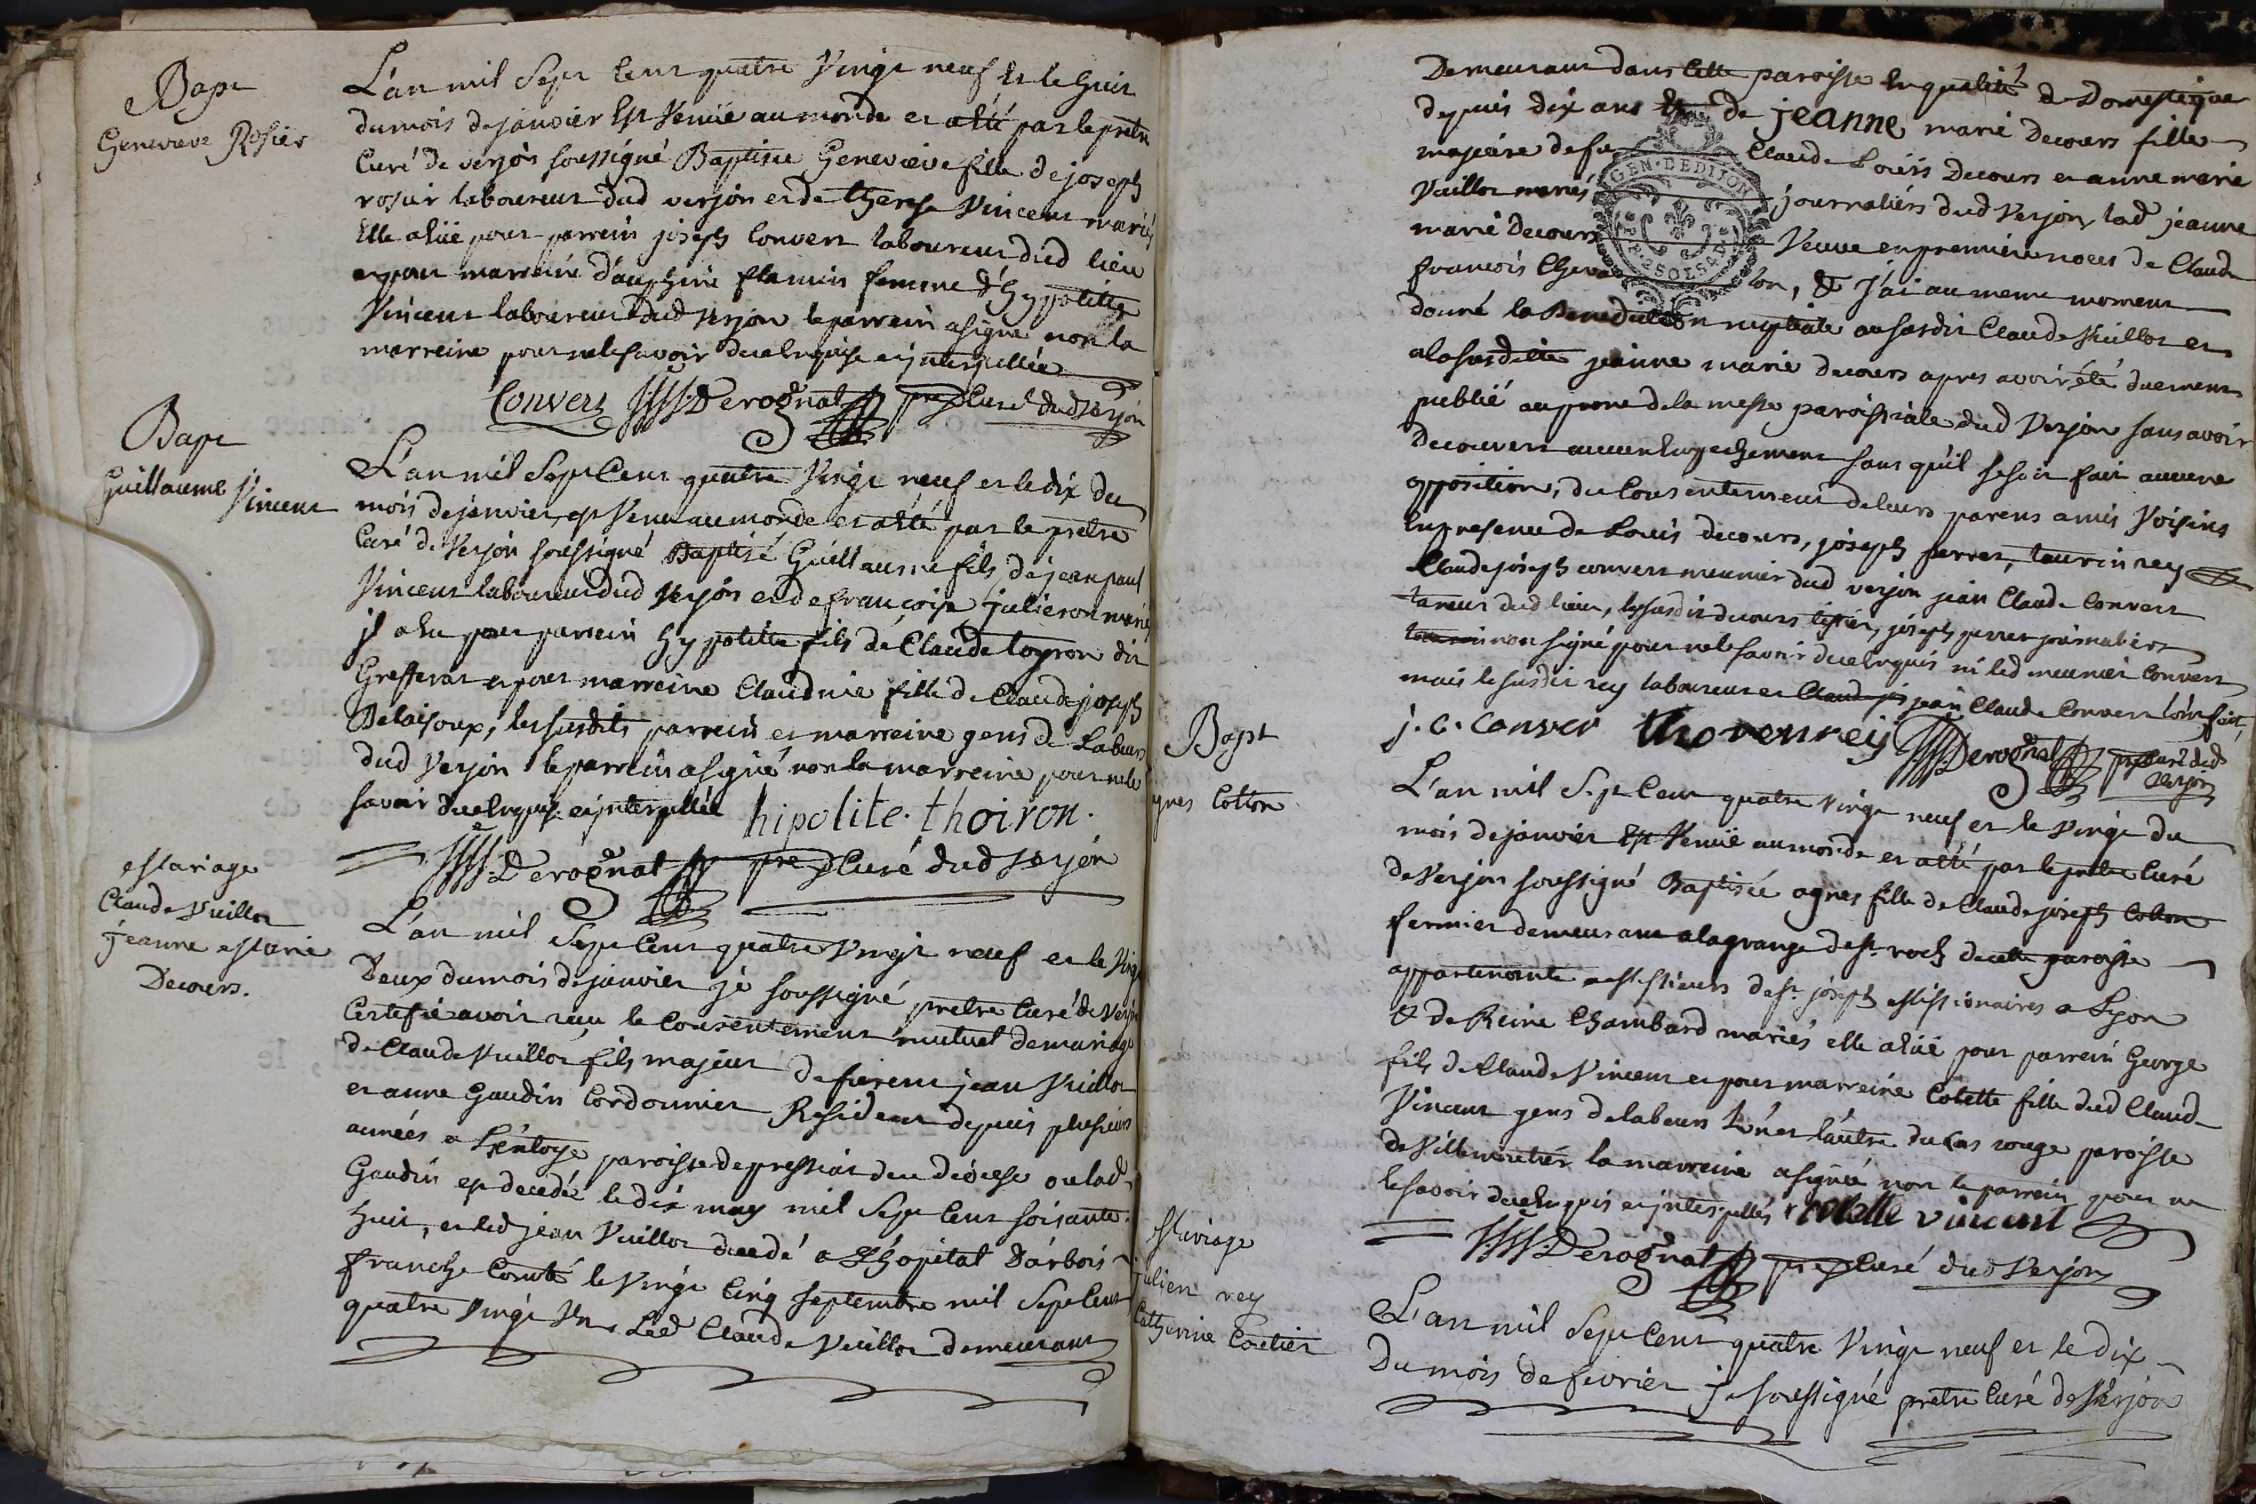 Bapt
Genevieve Rosier
L'an mil Sept Cent quatre Vingt neuf et le huit
du mois de janvier Est Venüe au monde et a été par le pretre
Curé de verjon soussigné Baptisée Genevieve fille de joseph
rosier laboureur dud verjon et de therese Vincent mariés
Elle a eüe pour parrein joseph Convert laboureur dud lieu
et pour marreine dauphine flamin femme d'hyppolitte
Vincent laboureur dud verjon le parrein a signé non la
marreine pour ne le savoir de ce enquise et jnterpellée
Convert Derognat pre Curé dud Verjon
Bapt
Guillaume Vincent
L'an mil Sept Cent quatre Vingt neuf et le dix du
mois de janvier, est Venu au monde et a été par le pretre
Curé de Verjon soussigné Baptisé Guillaume fils de jean paul
Vincent laboureur dud Verjon et de françoise julieron mariés
jl a eu pour parrein hyppolitte fils de Claude toyron dit
Grefferat et pour marreine Claudine fille de Claude joseph
Delaisoux, les susdits parrein et marreine gens de Labeurs
dud Verjon le parrein a signé non la marreine pour ne le
savoir de ce enquise et jnterpellée hipolite. thoiron.
Derognat pre Curé dud Verjon
Mariage
Claude Vuillot
jeanne Marie
Decours.
L'an mil Sept Cent quatre Vingt neuf et le Vingt
Deux du mois de janvier je soussigné pretre Curé de Verjon
Certifie avoir reçu le Consentement mutuel de mariage
de Claude Vuillot fils majeur de furent jean Vuillot
et anne Gaudin Cordonnier Resident depuis plusieurs
années a paroisse de pressiat du diocese ou lad
Gaudin est decedé le dix may mil Sept Cent soisante
huit, et led jean Vuillot decedé a L'hopital D'arbois
franche Comté le Vingt Cinq septembre mil Sept Cent
quatre Vingt Un Led Claude Vuillot demeurant
Demeurant dans Cette paroisse En qualité de Domestique
depuis dix ans de jeanne marie Decours fille
majeure de fu Claude Loüis Decours et anne marie
Vuillot mariés journaliers dud Verjon, lad jeanne
marie Decours Veuve en premiere noces de Claude
françois lon, & J'ai au meme moment
GEN. DE DIJON
2 SOLS 4 D
donné la Benediction nuptiale au susdit Claude Vuillot et
a la susditte jeanne marie decours apres avoir été duement
publié au prone de la messe paroissiale dud Verjon sans avoir
Decouvert aucun Empechement sans qu'il se soit fait aucune
opposition, du Consentement de leurs parens amis Voisins
En presence de Louis decours, joseph perret, taurin rey
Claude joseph convert meunier dud verjon jean Claude Convert
taneur dud lieu, les susdit decours joseph perret journaliers
non signé pour ne le savoir de ce enquis ni led meunier Convert
mais le susdit rey laboureur et jean Claude Convert l'ont fait
j. c. Conver thorenrey Derognat pre curé dud
Verjon
Bapt
gnes Cotton
L'an mil Sept Cent quatre vingt neuf et le vingt du
mois de janvier Est Venüe au monde et a été par le pretre Curé
de Verjon soussigné Baptisée agnes fille de Claude joseph Cotton
fermier demeurant a la grange de st roch de cette paroisse
appartenante a Messieurs de st joseph Missionaires a Lyon
& de Reine Chambard mariés elle a eüe pour parrein George
fils de Claude Vincent et pour marreine Colette fille dud Claude
Vincent gens de labeurs L'un et l'autre du Cas rouge paroisse
de Villemoutier la marreine a signée non le parrein pour ne
le savoir de ce enquis et jnterpellés Colette vincent
Derognat pre Curé dud Verjon
Mariage
julien rey
Catherine Coutier
L'an mil Sept Cent quatre Vingt neuf et le Dix
Du mois de fevrier je soussigné pretre Curé de Verjon